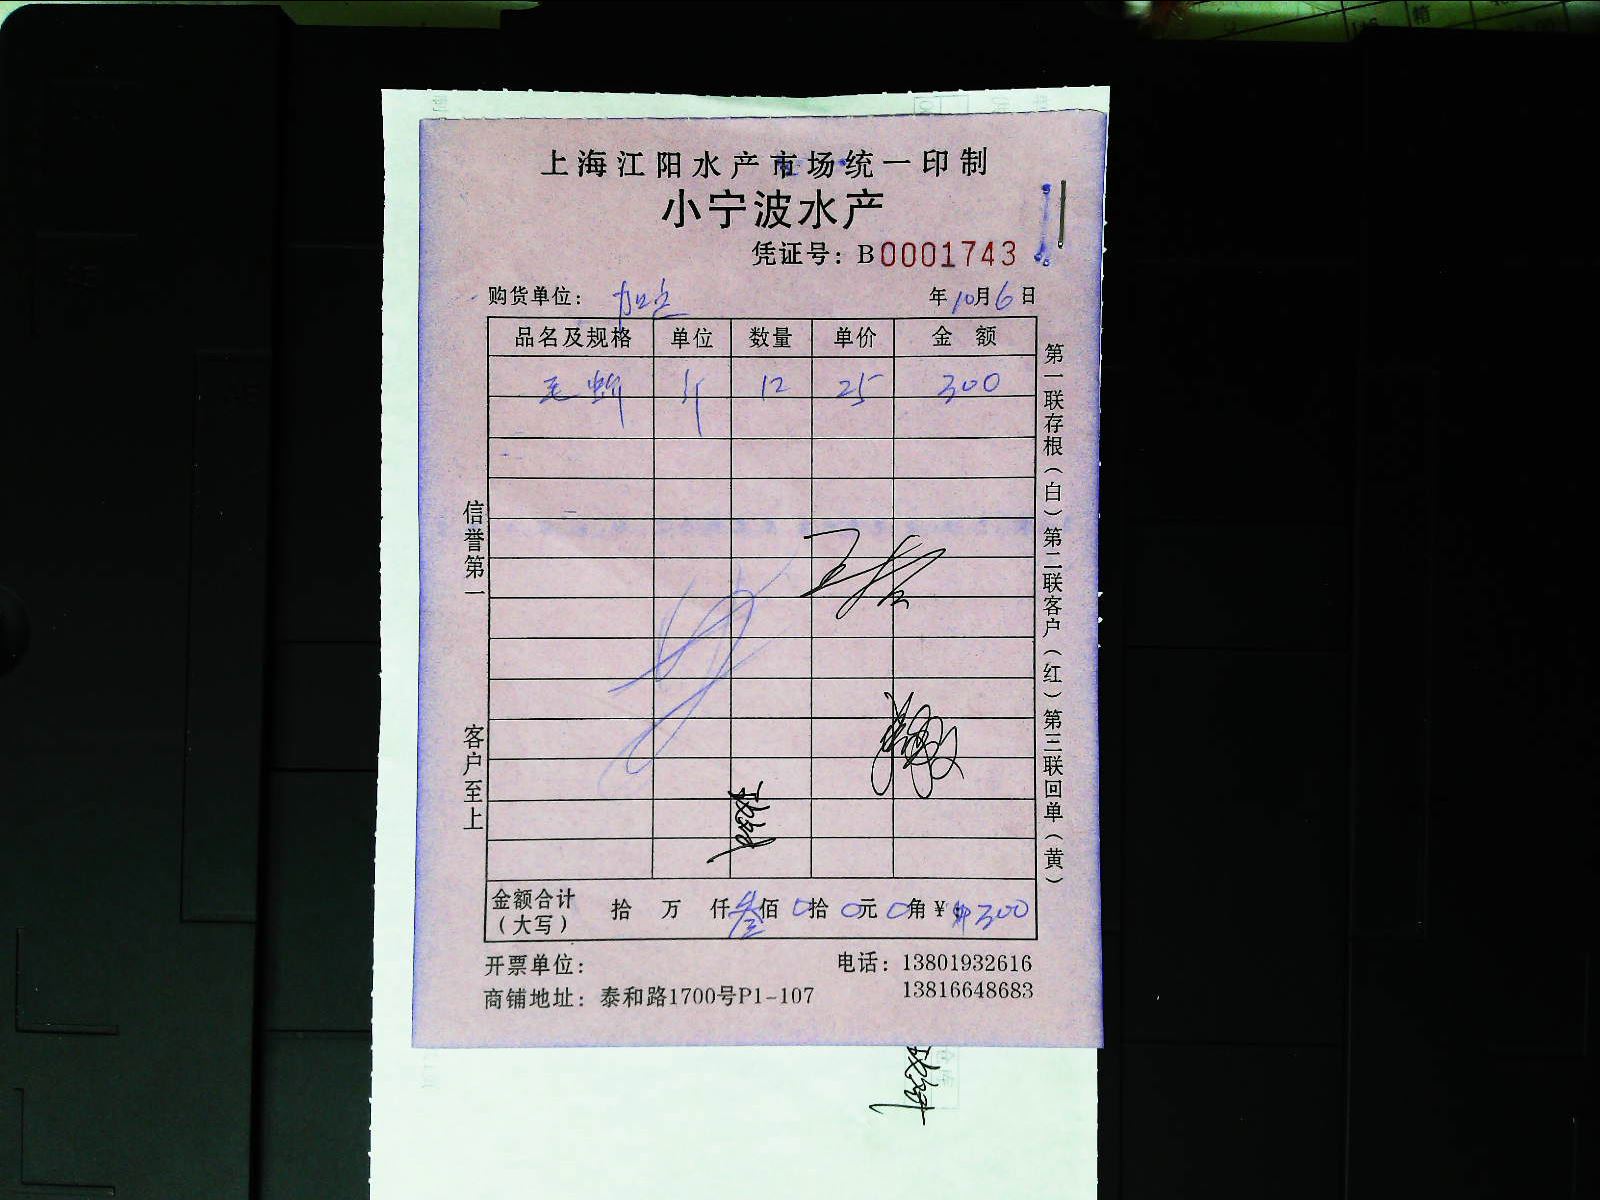 上海江阳水产市场统一印制
小宁波水产
凭证号：B0001743
购货单位：加点 年10月6日
品名及规格 单位 数量 单价 金额
毛蚶 斤 12 25 300
信誉第一
客户至上
第一联存根（白）第二联客户（红）第三联回单（黄）
金额合计（大写） 拾 万 仟叁佰0拾0元0角¥300
开票单位： 电话：13801932616
商铺地址：泰和路1700号P1-107 13816648683